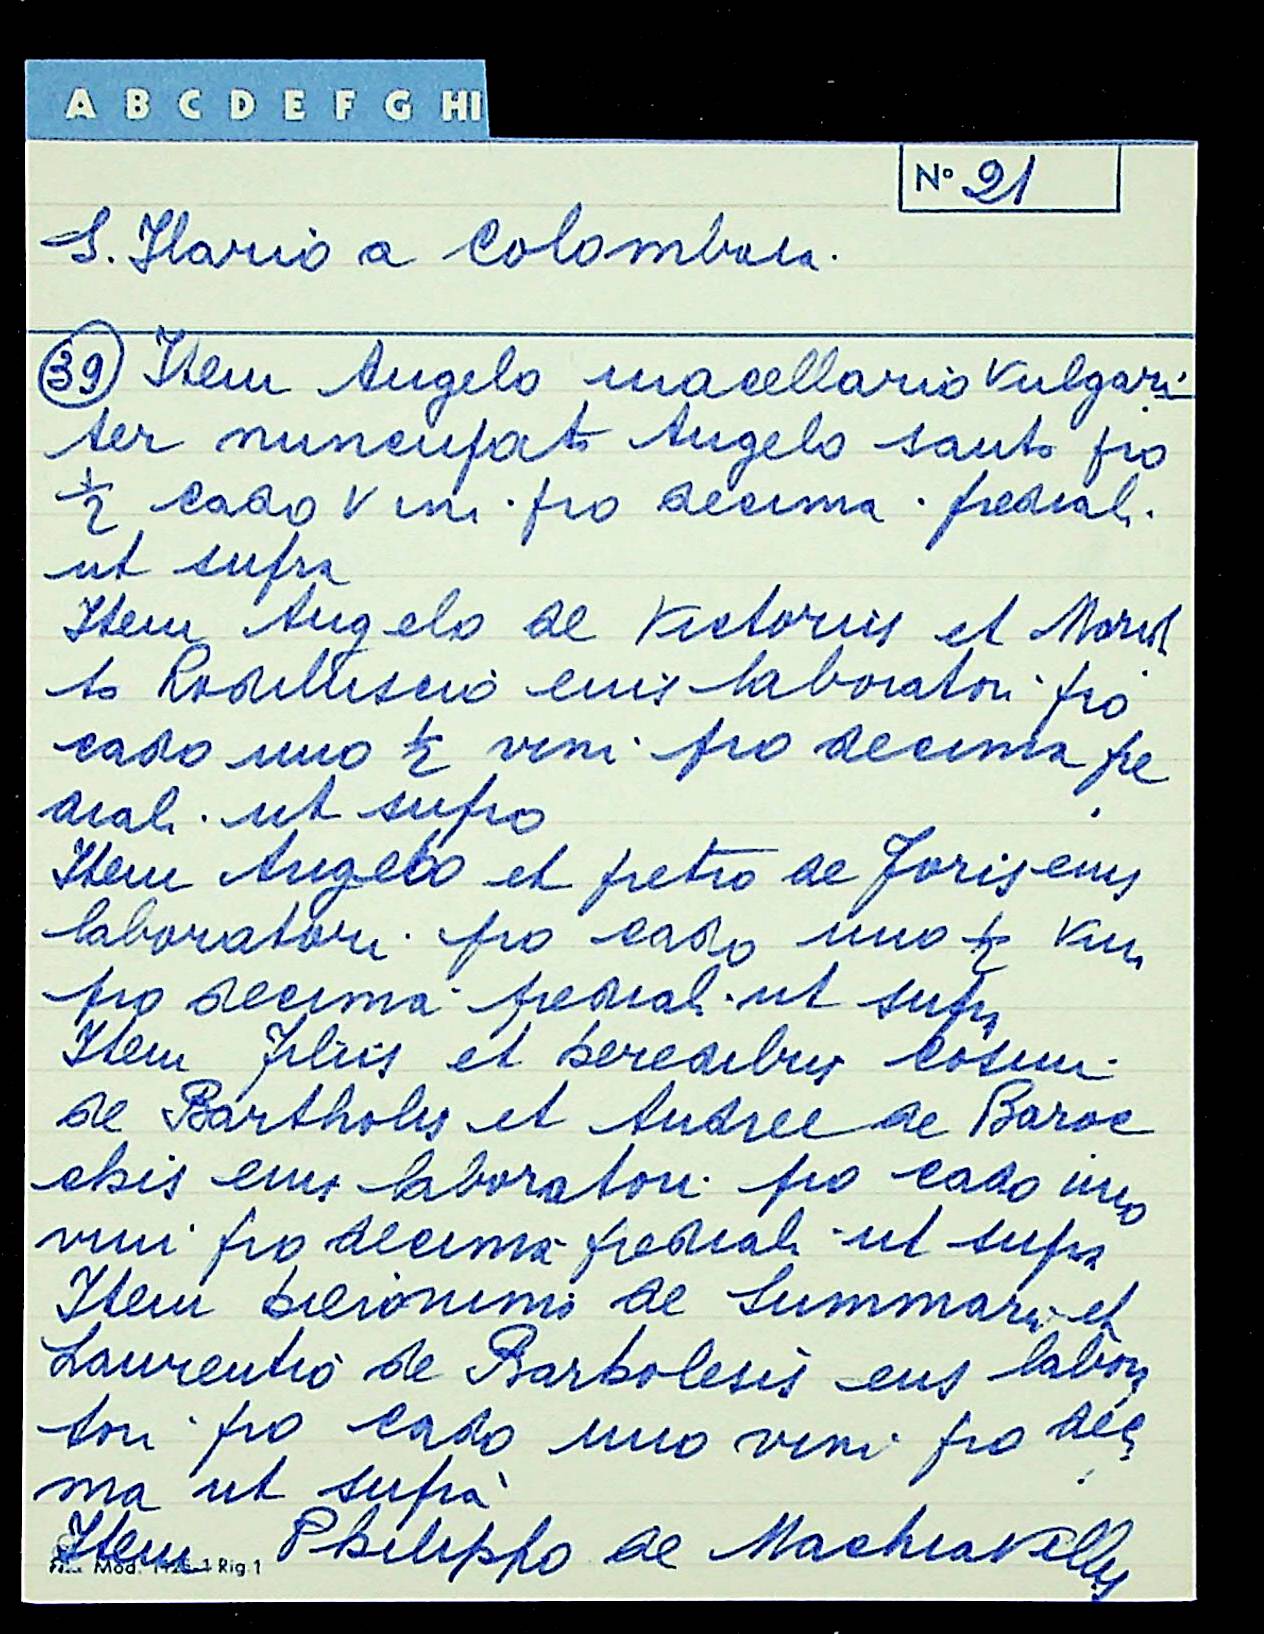 A B C D E F G HI
Nº 21
S. Ilario a Colombaia.
39 Item Angelo macellario vulgari
ter nuncupato Angelo santo pro
½ cado vini pro decima predial.
ut supra
Item Angelo de Victoriis et
to eius laboratori pro
cado uno ½ vini pro decima pre
diali ut supra
Item Angelo et pietro de Joris eius
laboratori pro cado uno ½ vini
pro decima prediali ut supra
Item filiis et heredibus Cosimi
de Bartholis et Andree de Baroc
chis eius laboratori pro cado uno
vini pro decima prediali ut supra
Item hieronimo de Summaris et
Laurentio de eius labora
tori pro cado uno vini pro deci
ma ut supra
Item Philippo de Machiavellis
Mod. Rig. 1